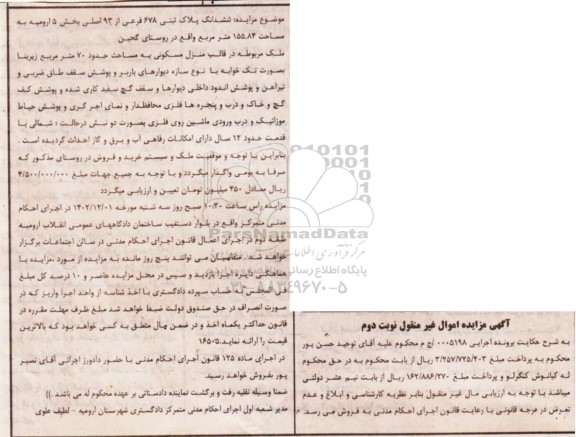 آگهی مزایده اموال غیر منقول نوبت دوم
به شرح حکایت پرونده اجرایی ۰۰۰۵۱۹۸ ج م محکوم علیه آقای توحید حسن پور
محکوم به پرداخت مبلغ ۳/۲۵۷/۷۲۵/۴۰۳ ریال از بابت محکوم به در حق محکوم
له کیانوش کنگرلو و پرداخت مبلغ ۱۶۲/۸۸۶/۲۷۰ ریال از بابت نیم عشر دولتی
میباشد با توجه به ارزیابی مال غیر منقول بنابر نظریه کارشناسی و ابلاغ و عدم
تعرض در فرجه قانونی با رعایت قانون اجرای احکام مدنی به فروش می رسد.
موضوع مزایده: ششدانگ پلاک ثبتی ۶۷۸ فرعی از ۹۳ اصلی بخش ۵ ارومیه به
مساحت ۱۵۵.۸۴ متر مربع واقع در روستای گجین
ملک مربوطه در قالب منزل مسکونی به مساحت حدود ۷۰ متر مربع زیربنا
بصورت تک خوابه با نوع سازه دیوارهای باربر و پوشش سقف طاق ضربی و
تیرآهن و پوشش اندود داخلی دیوارها و سقف گچ سفید کاری شده و پوشش کف
گچ و خاک و درب و پنجره ها فلزی محافظدار و نمای اجر گری و پوشش حیاط
موزائیک و درب ورودی ماشین روی فلزی بصورت دو نبش درحالت : شمالی با
قدمت حدود ۱۲ سال دارای امکانات رفاهی آب و برق و گاز احداث گردیده است .
بنابراین با توجه و موقعیت ملک و سیستم خرید و فروش در روستای مذکور که
صرفا به بومی واگذار میگردد و با توجه به جمیع جهات مبلغ ۴/۵۰۰/۰۰۰/۰۰۰
ریال معادل ۴۵۰ میلیون تومان تعیین و ارزیابی میگردد
مزایده راس ساعت ۱۰:۳۰ صبح روز سه شنبه مورخه ۱۴۰۲/۱۲/۰۱ در اجرای احکام
مدنی متمرکز واقع در بلوار دستغیب ساختمان دادگاههای عمومی انقلاب ارومیه
طبقه دوم در اجرای اعمال قانون اجرای احکام مدنی در سالن اجتماعات برگزار
خواهد شد . متقاضیان می توانند پنج روز مانده به مزایده از مورد ،مزایده با
هماهنگی دایره اجرا بازدید و سپس در محل مزایده حاضر و ۱۰ درصد کل مبلغ
فی المجلس به حساب سپرده دادگستری با اخذ شناسه از واحد اجرا واریز که در
صورت انصراف در حق صندوق دولت ضبط خواهد شد مبلغ ظرف مهلت مقرره در
قانون حداکثر یکماه اخذ و در ضمن مال متعلق به کسی خواهد بود که بالاترین
قیمت را ارائه نماید. ۱۶۵۰۵
در اجرای ماده ۱۲۵ قانون اجرای احکام مدنی با حضور دادورز اجرائی آقای نصیر
پور بفروش خواهد رسید.
ضمنا وسیله نقلیه رفت و برگشت نماینده دادستانی بر عهده محکوم له می باشد .))
مدیر شعبه اول اجرای احکام مدنی متمرکز دادگستری شهرستان ارومیه - لطیف علوی
ParsNamadData
پایگاه اطلاع رسانی
۰۲۱-۸۸۳۴۹۶۷۰-۵